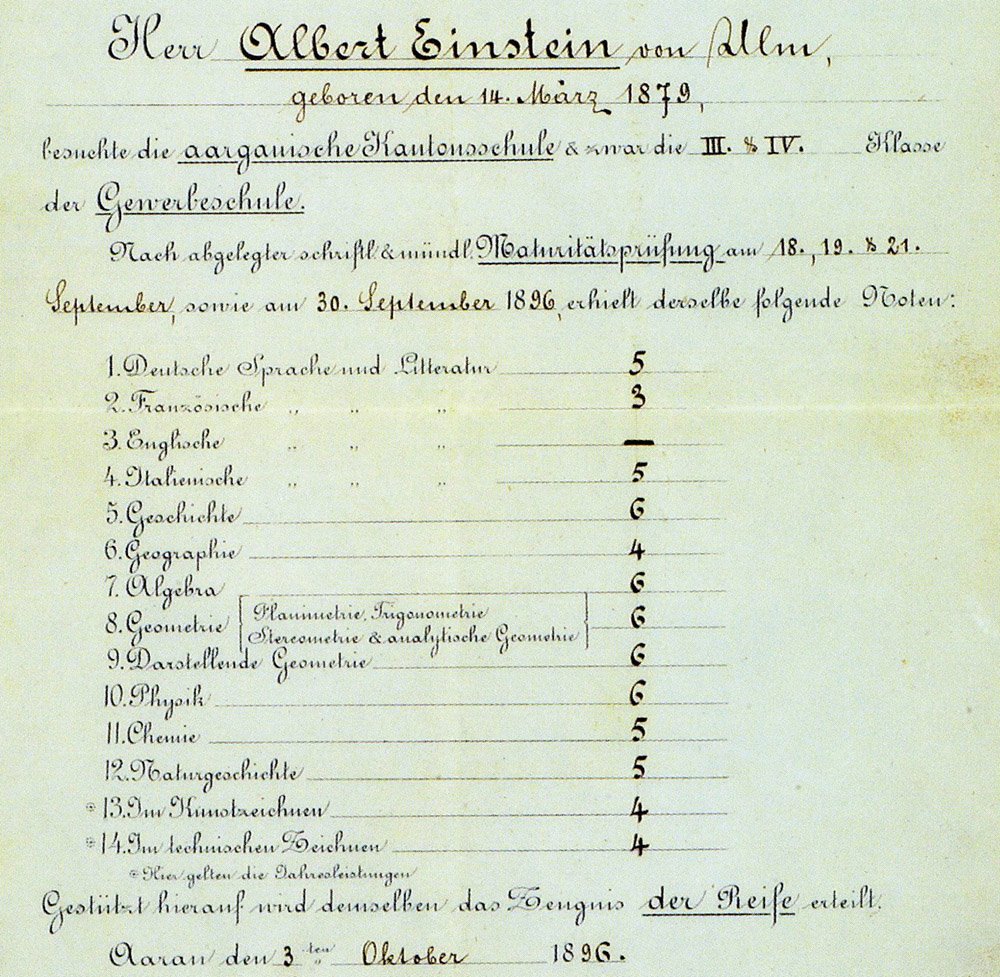 Herr Albert Einstein von Ulm,
geboren den 14. März 1879,
besuchte die aargauische Kantonsschule & zwar die III. & IV. Klasse
der Gewerbeschule.
Nach abgelegter schriftl. & mündl. Maturitätsprüfung am 18., 19. & 21.
September, sowie am 30. September 1896, erhielt derselbe folgende Noten:
1. Deutsche Sprache und Litteratur 5
2. Französische „ „ „ 3
3. Englische „ „ „ —
4. Italienische „ „ „ 5
5. Geschichte 6
6. Geographie 4
7. Algebra 6
8. Geometrie [Planimetrie, Trigonometrie
Stereometrie & analytische Geometrie] 6
9. Darstellende Geometrie 6
10. Physik 6
11. Chemie 5
12. Naturgeschichte 5
* 13. Im Kunstzeichnen 4
* 14. Im technischen Zeichnen 4
* Hier gelten die Jahresleistungen
Gestützt hierauf wird demselben das Zeugnis der Reife erteilt.
Aarau den 3ten Oktober 1896.